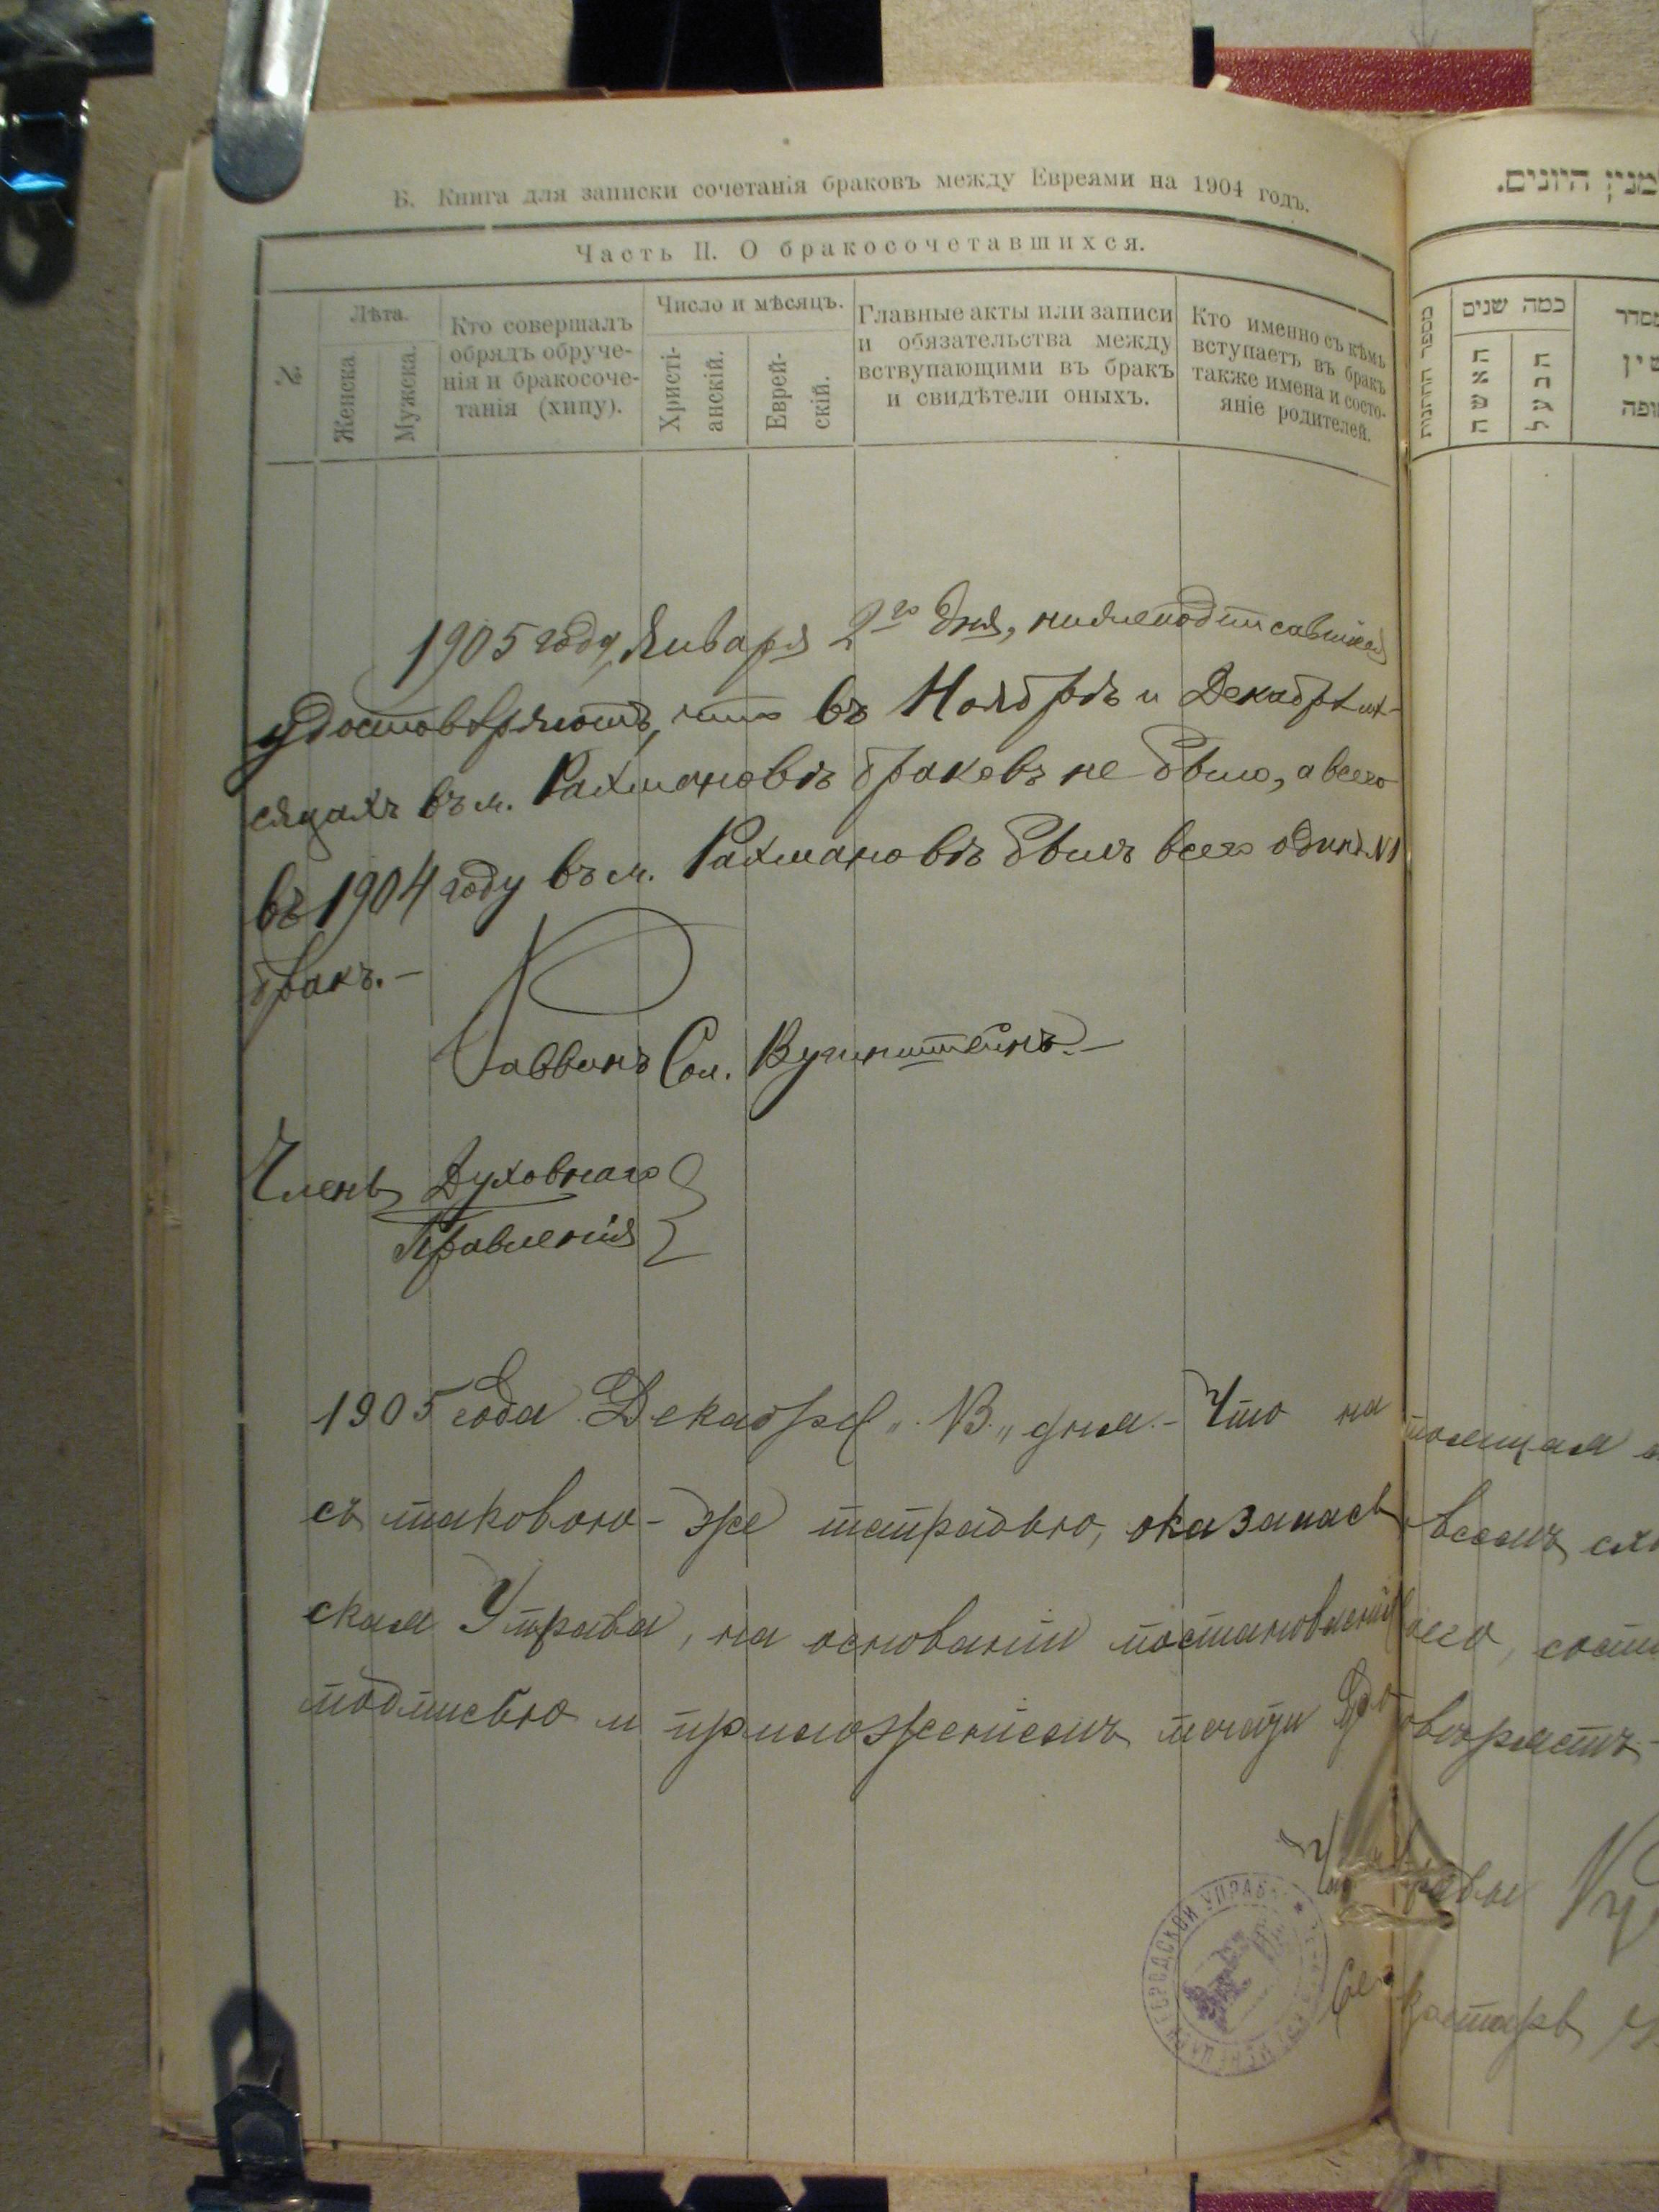 Б. Книга для записки сочетанія браковъ между Евреями на 1904 годъ.
Часть II. О бракосочетавшихся.
№
Лѣта.
Женска
Мужска.
Кто совершалъ
обрядъ обруче-
нія и бракосоче-
танія (хипу).
Число и мѣсяцъ.
Христі-
анскій.
Еврей-
скій.
Главные акты или записи
и обязательства между
вствупающими въ бракъ
и свидѣтели оныхъ.
Кто именно съ кѣмъ
вступаетъ въ бракъ
также имена и состо-
яніе родителей.
1905 года, Января 2го дня, нижеподписавшіеся
удостовѣряютъ, что въ Ноябрѣ и Декабрѣ мѣ-
сяцахъ въ м. Рахмановѣ браковъ не было, а всего
въ 1904 году въ м. Рахмановѣ былъ всего одинъ №1
бракъ.—
Раввинъ Сол.
Членъ Духовнаго
Правленія
1905 года Декабря дня.- Что на
стоящая
съ таковою-же тетрадью, оказалась
всемъ
ская Управа, на основаніи постановленія
своего,
подписью и приложеніемъ печати удо
стовѣряетъ-
ГОРОДСКОЙ УПРАВЫ
Секретарь
למנין היונים.
מספר החתונות
כמה שנים
האשה
הבעל